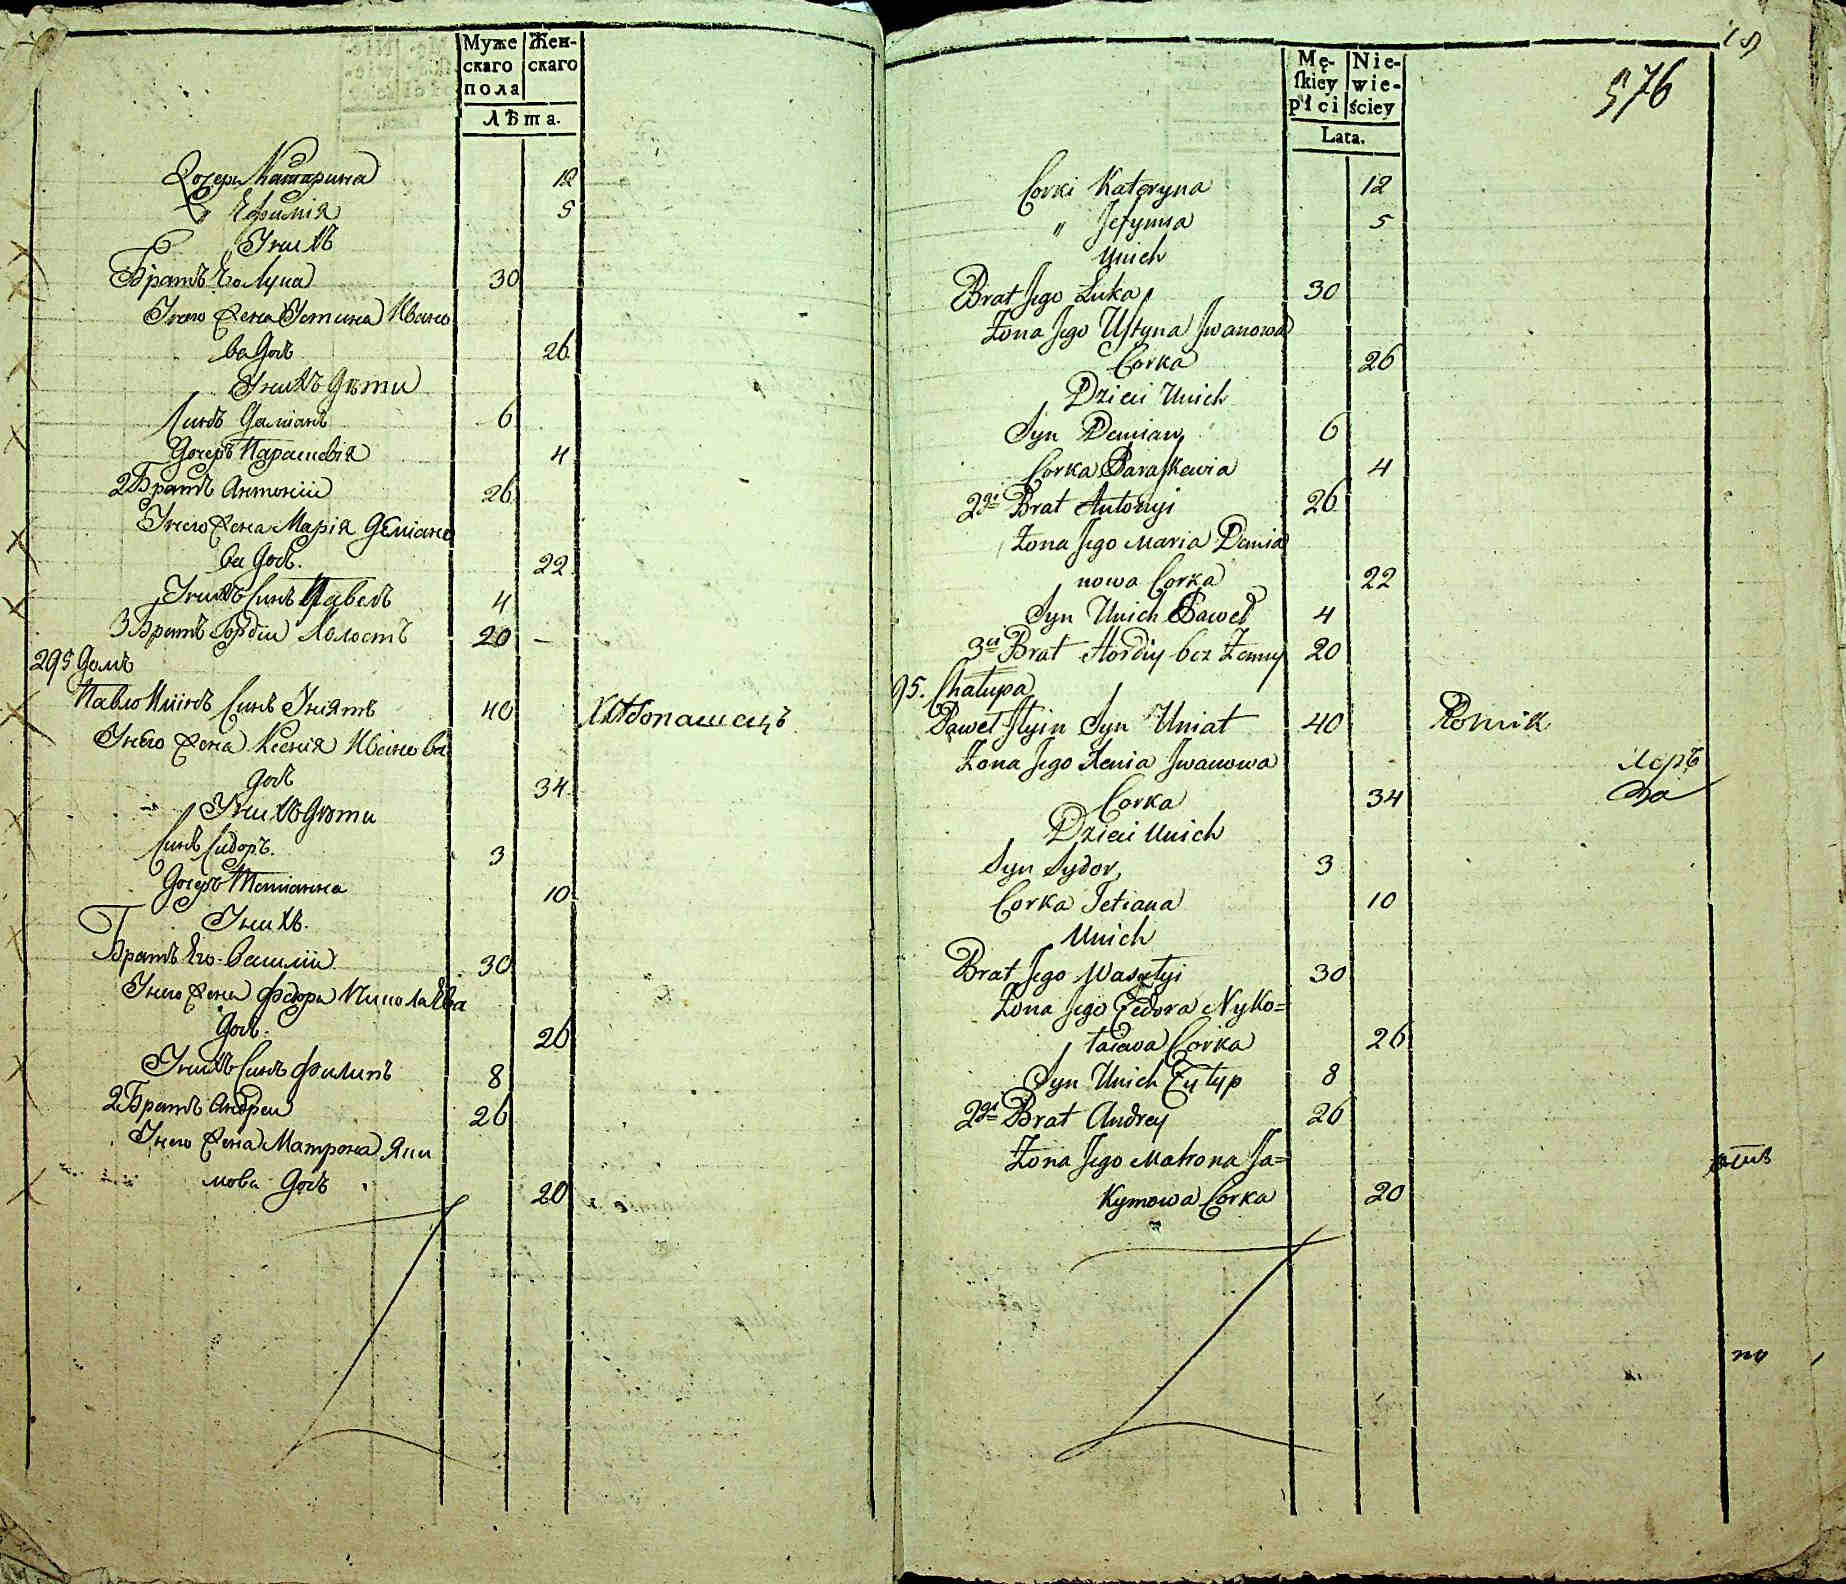 Муже Жен-
скаго скаго
пола
Лѣта.
Дочери Катарина 12
" Ефимія 5
У нихъ
Братъ Его Лука 30
У него жена Устина Ивано
ва доч. 26
У нихъ дѣти
Синъ Даміанъ 6
Дочеръ Параскевія 4
2 Братъ Антоній 26
У него жена Марія Деміано
ва доч. 22
У нихъ Синъ Павелъ 4
3 Братъ Гордій Холостъ 20 —
295 Домъ
Павло Илїинъ Синъ Уніятъ 40 Хлѣбопашецъ
У него жена Ксенія Иванова
доч. 34
У нихъ дѣти
Синъ Сидоръ. 3
Дочеръ Тетіанна 10
У нихъ.
Братъ Его Василій 30
У него жена Федора Николаева
доч. 26
У нихъ Синъ Филипъ 8
2 Братъ Андреи 26
У него жена Матрона Яки
мова доч. 20
576
Mę- Nie-
ſkiey wie-
płci ściey
Lata.
Corki Kateryna 12
" Jefymia 5
Unich
Brat Jego Łuka 30
Żona Jego Uſtyna Jwanowa
Corka 26
Dzieci Unich
Syn Demian 6
Corka Paraſkewia 4
2gi Brat Antonyi 26
Żona Jego Maria Demia
nowa Corka 22
Syn Unich Paweł 4
3ci Brat Hordiy bez Żenny 20
95. Chałupa
Paweł Jlyin Syn Uniat 40 Rolnik
Żona Jego Xenia Jwanowa
Corka 34
Dzieci Unich
Syn Sydor 3
Corka Tetiana 10
Unich
Brat Jego Wasylyi 30
Żona Jego Fedora Nyko=
łaiewa Corka 26
Syn Unich Fylyp 8
2gi Brat Andrey 26
Żona Jego Matrona Ja=
kymowa Corka 20